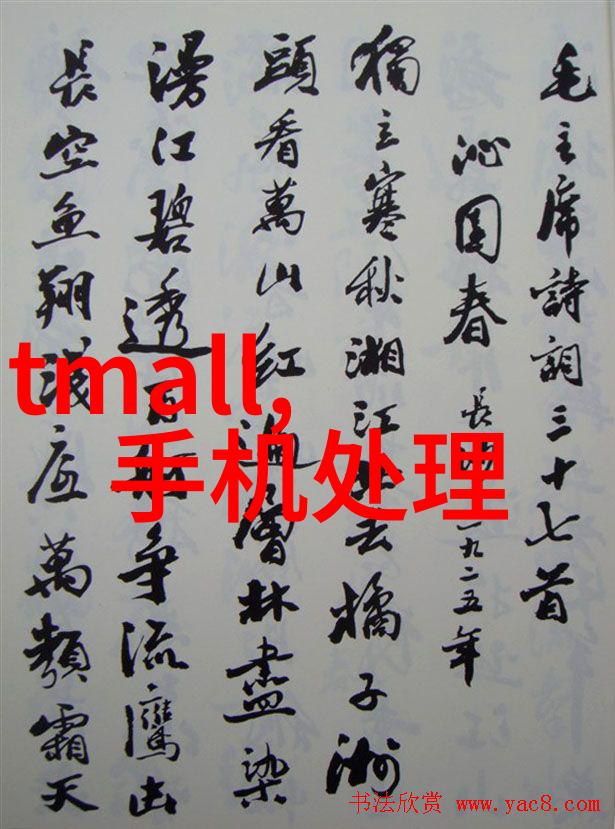 毛主席詩詞三十七首
沁園春 長沙 一九二五年
獨立寒秋湘江北去橘子洲
頭看萬山红遍層林盡染
漫江碧透百舸争流鷹击
長空魚翔浅底萬類霜天
tmall,
手机处理
书法欣赏 www.yac8.com